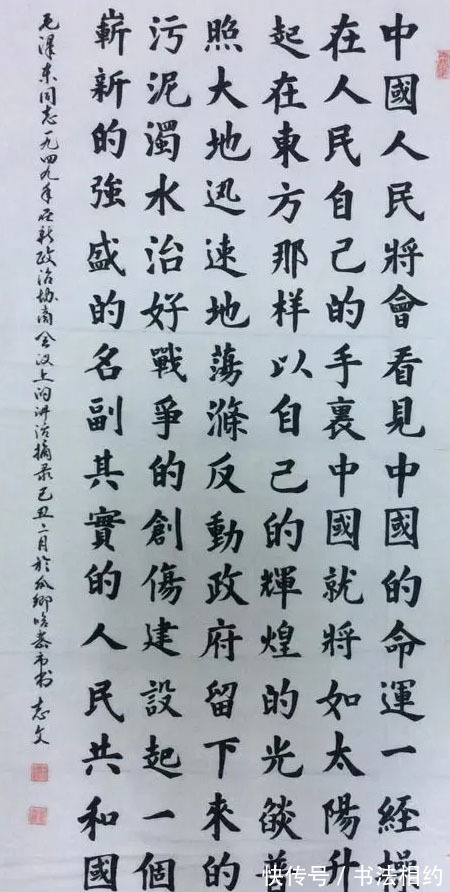 中國人民將會看見中國的命運一經操
在人民自己的手裏中國就將如太陽升
起在東方那样以自己的輝煌的光燄普
照大地迅速地蕩滌反動政府留下来的
污泥濁水治好戰爭的創傷建設起一個
嶄新的強盛的名副其實的人民共和國
毛澤东同志一九四九年在新政治协商会议上的讲话摘录己丑二月於瓜鄉哈密市书 志文
快传号/书法相约